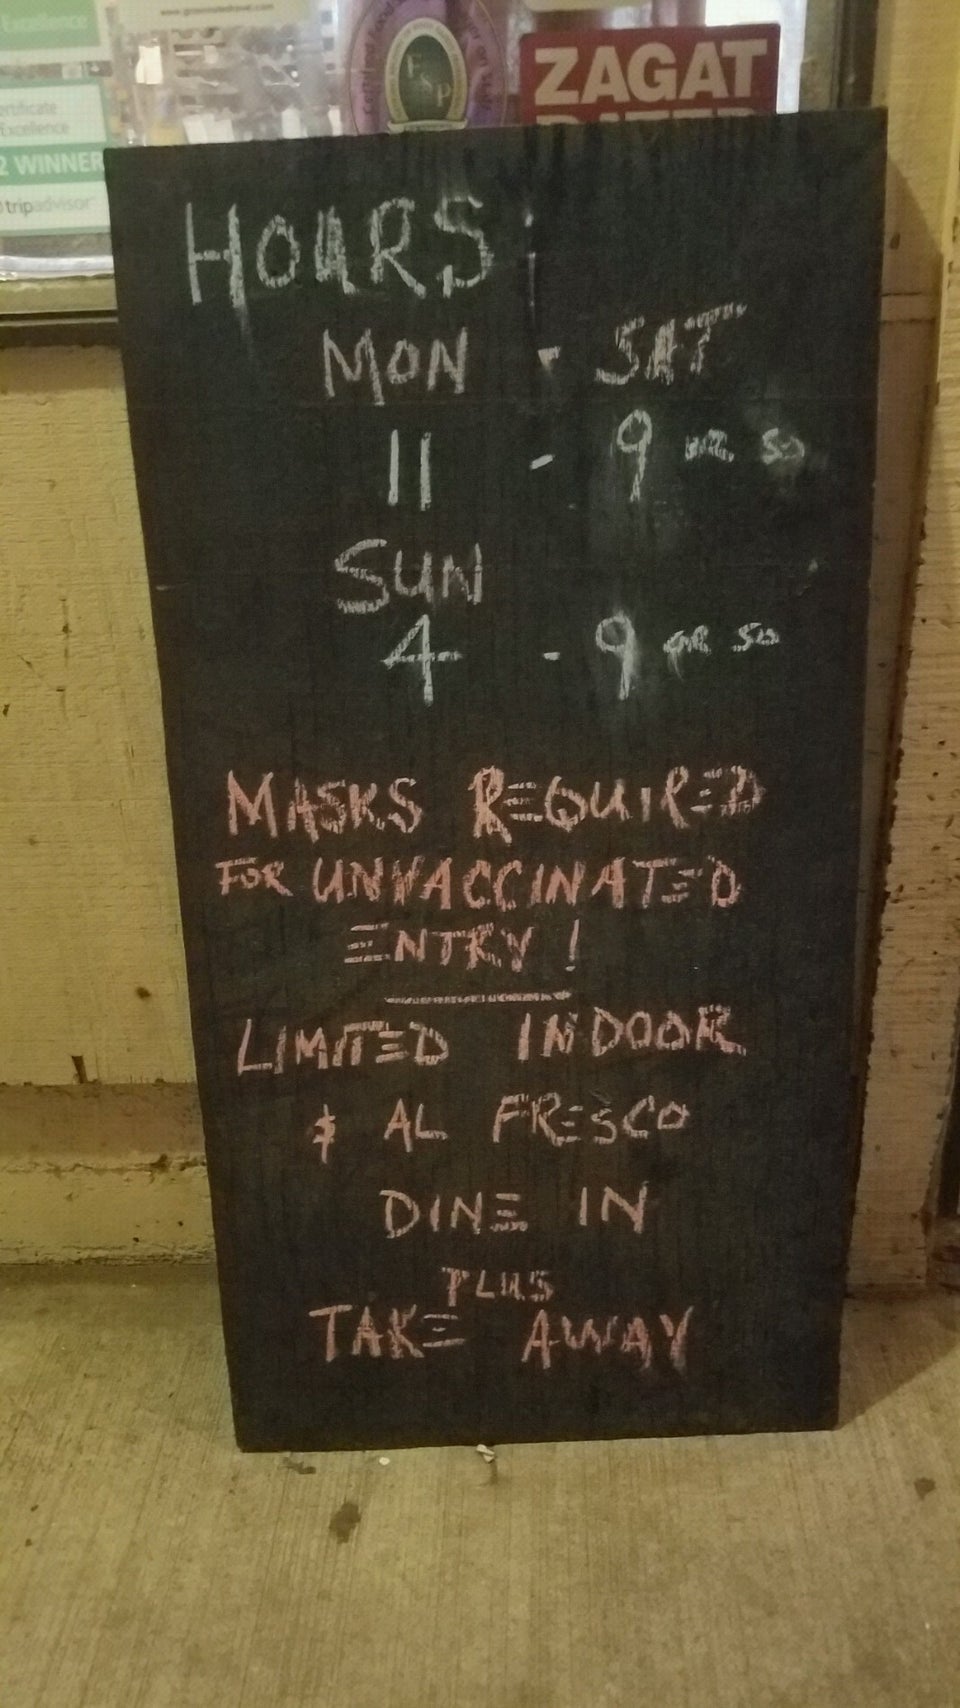 Excellence
www.greenrotedtravel.com
ESP
ZAGAT
RATED
ertificate
Excellence
2 WINNER
tripadvisor
HOURS:
MON - SAT
11 - 9 OR SO
SUN
4 - 9 OR SO
MASKS REQUIRED
FOR UNVACCINATED
ENTRY!
LIMITED INDOOR
& AL FRESCO
DINE IN
PLUS
TAKE AWAY